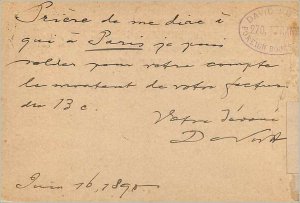 Prière de me dire à
qui à Paris je puis
solder pour votre compte
le montant de votre facture
du 13 c.
Votre dévoué
D. Nutt
Juin 16, 1890
DAVID
270,
FOREIGN BOOKS